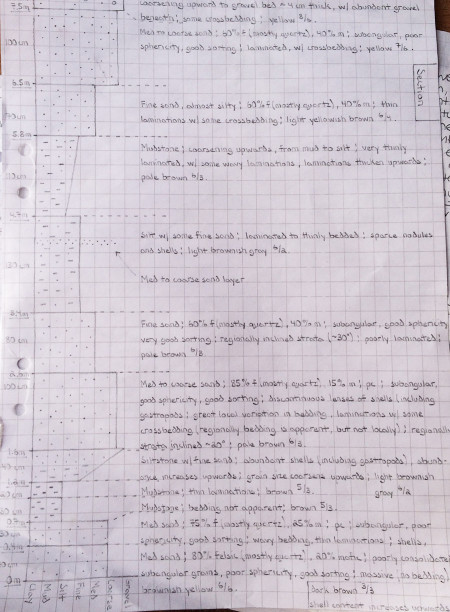 7.5m
coarsening upward to gravel bed ~ 4 cm thick, w/ abundant gravel
beneath; some crossbedding; yellow 7/6.
Med to coarse sand; 60% f (mostly quartz), 40% m; subangular, poor
100cm
sphericity, good sorting; laminated, w/ crossbedding; yellow 7/6.
6.5m
Section
Fine sand, almost silty; 60% f (mostly quartz), 40% m; thin
70cm
laminations w/ some crossbedding; light yellowish brown 6/4.
5.8m
Mudstone; coarsening upwards, from mud to silt; very thinly
laminated, w/ some wavy laminations, laminations thicken upwards;
pale brown 6/3.
Silt w/ some fine sand; laminated to thinly bedded; sparse nodules
and shells; light brownish gray 6/2.
Med to coarse sand layer
Fine sand; 60% f (mostly quartz), 40% m; subangular, good sphericity
very good sorting; regionally inclined strata (~30°); poorly laminated;
pale brown 6/3
Med to coarse sand; 85% f (mostly quartz), 15% m; pc; subangular,
100cm
good sphericity, good sorting; discontinuous lenses of shells (including
gastropods; great local variation in bedding, laminations w/ some
crossbedding (regionally bedding is apparent, but not locally); regionally
strata inclined ~20°; pale brown 6/3.
1.6m
Siltstone w/ fine sand; abundant shells (including gastropods), abund-
ance increases upwards; grain size coarsens upwards; light brownish
gray 6/2
Mudstone; thin laminations; brown 5/3.
Mudstone; bedding not apparent; brown 5/3.
Med sand; 75% f (mostly quartz), 25% m; pc; subangular, poor
sphericity, good sorting; wavy bedding, thin laminations; shells.
Med sand; 80% felsic (mostly quartz), 20% mafic; poorly consolidated
subangular grains, poor sphericity, good sorting; massive (no bedding)
0m
brownish yellow 6/6.
Dark brown 3/3
shell content increases upwards
Clay
Silt
Fine
Med
Coarse
Gravel